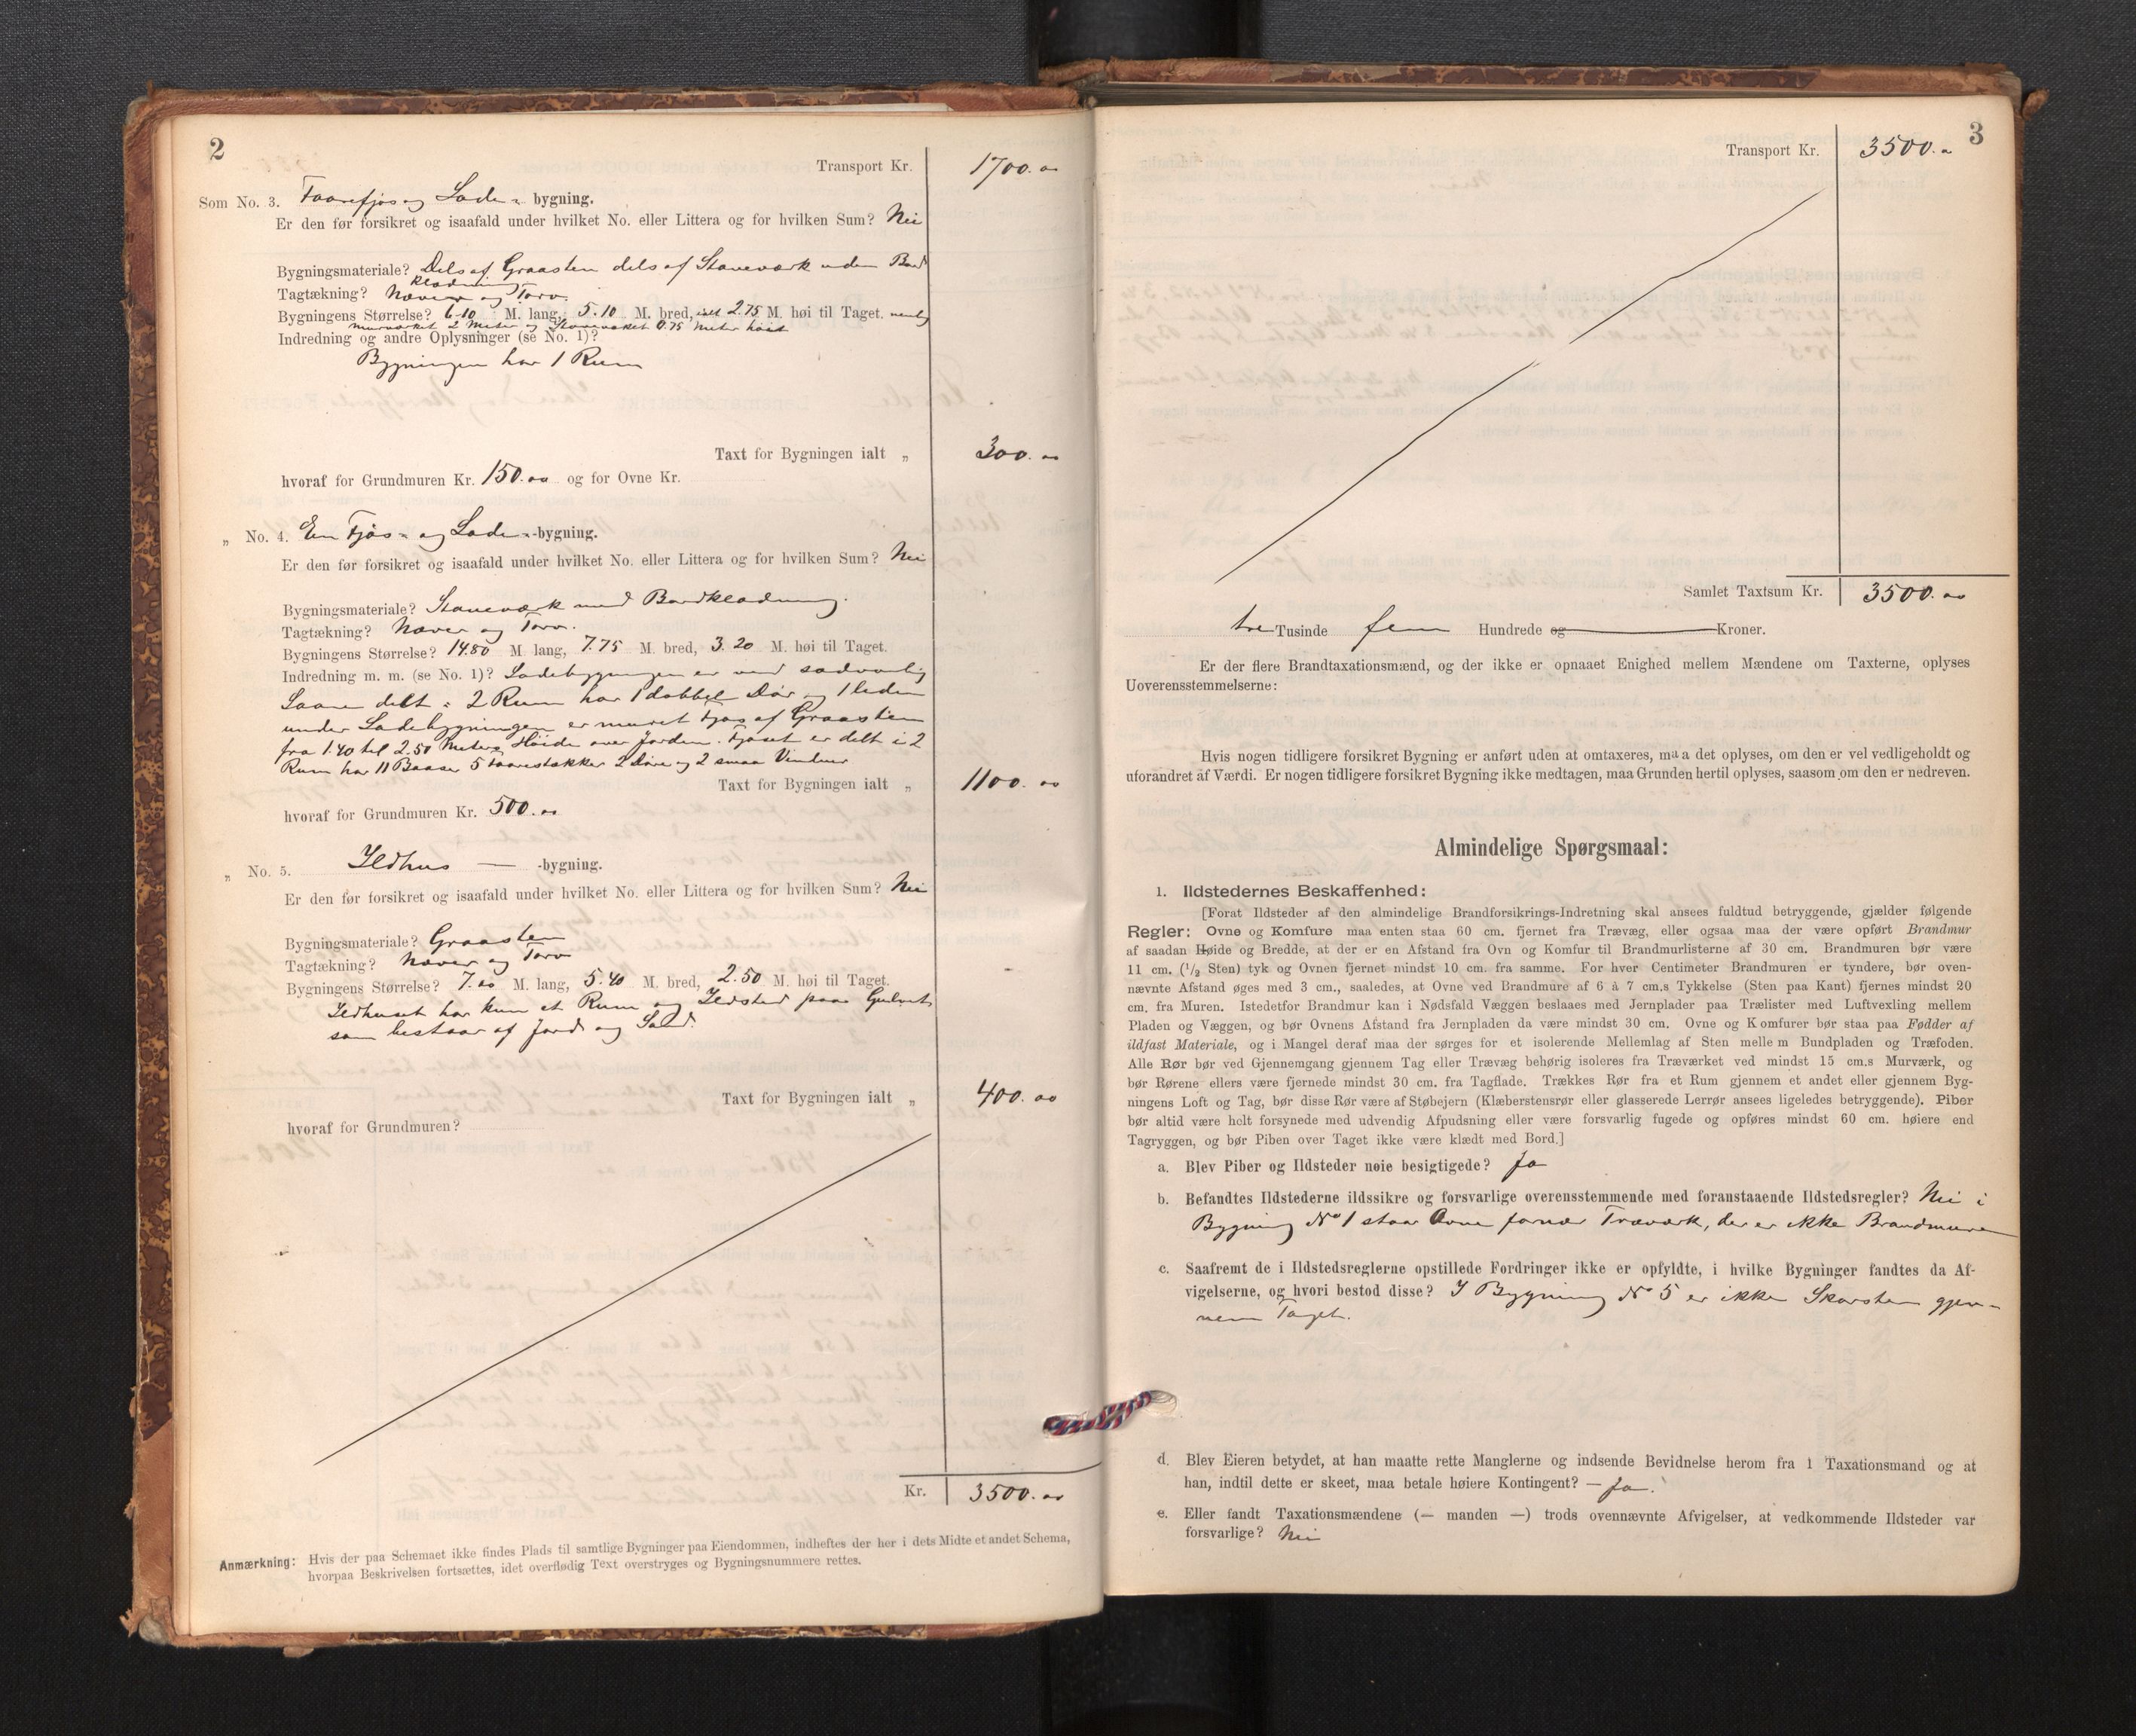 2
Transport Kr. 1700.00
Som No. 3. Faarefjøs og Lade- bygning.
Er den før forsikret og isaafald under hvilket No. eller Littera og for hvilken Sum? Nei
Bygningsmateriale? Dels af Graasten dels af Staveværk uden Bord
klædning
Tagtækning? Næver og Torv.
Bygningens Størrelse? 6.10 M. lang, 5.10 M. bred, 2.75 M. høi til Taget. nemlig
murværket 2 Meter og Staveværket 0.75 Meter høit
Indredning og andre Oplysninger (se No. 1)?
Bygningen har 1 Rum
Taxt for Bygningen ialt „ 300.00
hvoraf for Grundmuren Kr. 150.00 og for Ovne Kr.
„ No. 4. En Fjøs- og Lade- -bygning.
Er den før forsikret og isaafald under hvilket No. eller Littera og for hvilken Sum? Nei
Bygningsmateriale? Staveværk med Bordklædning.
Tagtækning? Næver og Torv.
Bygningens Størrelse? 14.80 M lang, 7.75 M. bred, 3.20 M. høi til Taget.
Indredning m. m. (se No. 1)? Ladebygningen er med sædvanlig
Laave delt i 2 Rum har 1 dobbel Dør og 1
under Ladebygningen er muret Fjøs af Graasten
fra 1.40 til 2.50 Meters Høide over Jorden. Fjøset er delt i 2
Rum har 11 Baaser 5 2 Døre og 2 smaa Vinduer
Taxt for Bygningen ialt „ 1100.00
hvoraf for Grundmuren Kr. 500.00
„ No. 5. Ildhus — -bygning.
Er den før forsikret og isaafald under hvilket No. eller Littera og for hvilken Sum? Nei
Bygningsmateriale? Graasten
Tagtækning? Næver og Torv
Bygningens Størrelse? 7.00 M. lang, 5.40 M. bred, 2.50 M. høi til Taget.
Ildhuset har kun et Rum og Ildsted paa Gulvet,
som bestaar af Jord og
Taxt for Bygningen ialt „ 400.00
hvoraf for Grundmuren?
Kr. 3500.00
Anmærkning: Hvis der paa Schemaet ikke findes Plads til samtlige Bygninger paa Eiendommen, indheftes der her i dets Midte et andet Schema,
hvorpaa Beskrivelsen fortsættes, idet overflødig Text overstryges og Bygningsnummere rettes.
3
Transport Kr. 3500.
Samlet Taxtsum Kr. 3500.00
tre Tusinde fem Hundrede og Kroner.
Er der flere Brandtaxationsmænd, og der ikke er opnaaet Enighed mellem Mændene om Taxterne, oplyses
Uoverensstemmelserne:
Hvis nogen tidligere forsikret Bygning er anført uden at omtaxeres, maa det oplyses, om den er vel vedligeholdt og
uforandret af Værdi. Er nogen tidligere forsikret Bygning ikke medtagen, maa Grunden hertil oplyses, saasom om den er nedreven.
Almindelige Spørgsmaal:
1. Ildstedernes Beskaffenhed:
[Forat Ildsteder af den almindelige Brandforsikrings-Indretning skal ansees fuldtud betryggende, gjælder følgende
Regler: Ovne og Komfure maa enten staa 60 cm. fjernet fra Trævæg, eller ogsaa maa der være opført Brandmur
af saadan Høide og Bredde, at der er en Afstand fra Ovn og Komfur til Brandmurlisterne af 30 cm. Brandmuren bør være
11 cm. (1/2 Sten) tyk og Ovnen fjernet mindst 10 cm. fra samme. For hver Centimeter Brandmuren er tyndere, bør oven-
nævnte Afstand øges med 3 cm., saaledes, at Ovne ved Brandmure af 6 à 7 cm.s Tykkelse (Sten paa Kant) fjernes mindst 20
cm. fra Muren. Istedetfor Brandmur kan i Nødsfald Væggen beslaaes med Jernplader paa Trælister med Luftvexling mellem
Pladen og Væggen, og bør Ovnens Afstand fra Jernpladen da være mindst 30 cm. Ovne og Komfurer bør staa paa Fødder af
ildfast Materiale, og i Mangel deraf maa der sørges for et isolerende Mellemlag af Sten mellem Bundpladen og Træfoden.
Alle Rør bør ved Gjennemgang gjennem Tag eller Trævæg behørig isoleres fra Træværket ved mindst 15 cm.s Murværk, og
bør Rørene ellers være fjernede mindst 30 cm. fra Tagflade. Trækkes Rør fra et Rum gjennem et andet eller gjennem Byg-
ningens Loft og Tag, bør disse Rør være af Støbejern (Klæberstensrør eller glasserede Lerrør ansees ligeledes betryggende). Piber
bør altid være helt forsynede med udvendig Afpudsning eller være forsvarlig fugede og opføres mindst 60 cm. høiere end
Tagryggen, og bør Piben over Taget ikke være klædt med Bord.]
a. Blev Piber og Ildsteder nøie besigtigede? Ja
b. Befandtes Ildstederne ildssikre og forsvarlige overensstemmende med foranstaaende Ildstedsregler? Nei i
Bygning No 1 staar Ovne fornær Træværk, der er ikke Brandmure
c. Saafremt de i Ildstedsreglerne opstillede Fordringer ikke er opfyldte, i hvilke Bygninger fandtes da Af-
vigelserne, og hvori bestod disse? I Bygning No 5 er ikke Skorsten gjen-
nem Taget.
d. Blev Eieren betydet, at han maatte rette Manglerne og indsende Bevidnelse herom fra 1 Taxationsmand og at
han, indtil dette er skeet, maa betale høiere Kontingent? — Ja.
e. Eller fandt Taxationsmændene (— manden —) trods ovennævnte Afvigelser, at vedkommende Ildsteder var
forsvarlige? Nei